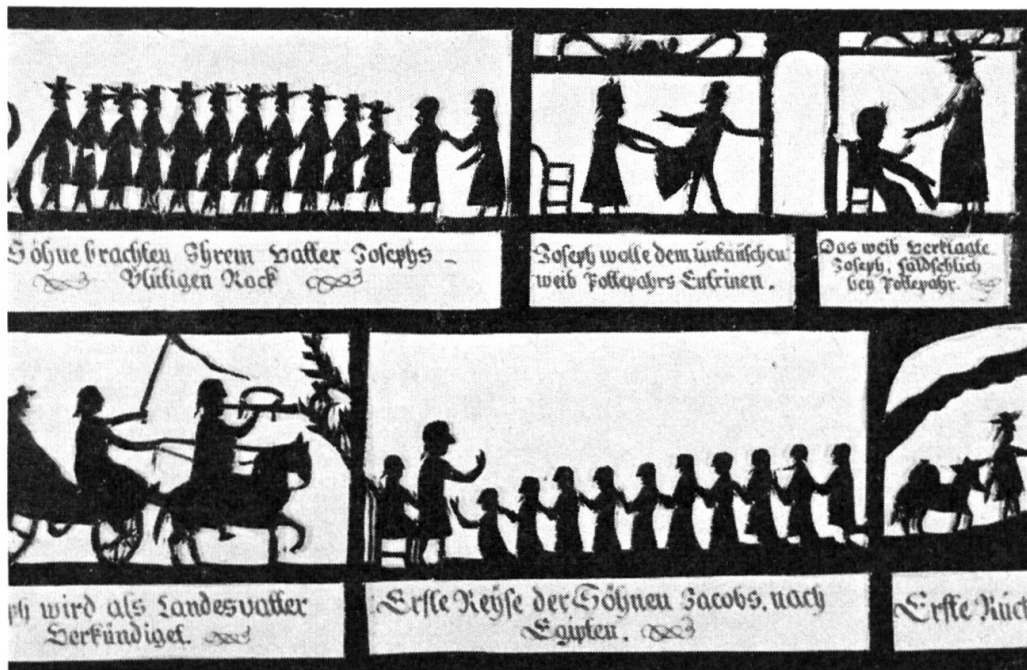 Söhne brachten Ihrem Vatter Josephs
Blutigen Rock
Joseph wolte dem unkäuschen
weib Pottepahrs Entrinen.
Das weib Verklagte
Joseph, fäldschlich
bey Pottepahr.
ph wird als Landesvatter
Verkündiget.
Erste Reyse der Söhnen Jacobs, nach
Egipten.
Erste Rück